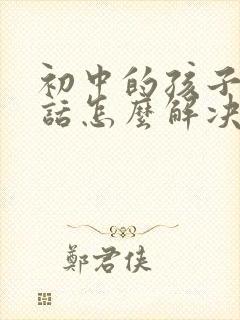 初中的孩子
話怎麼解决
鄭君俠